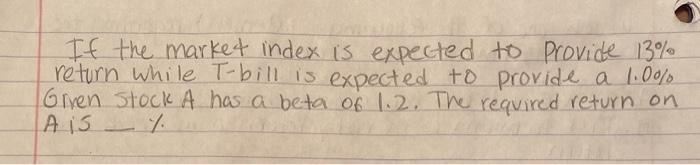 If the market index is expected to provide 13%
return while T-bill is expected to provide a 1.00%
Given stock A has a beta of 1.2. The required return on
A is __ %.